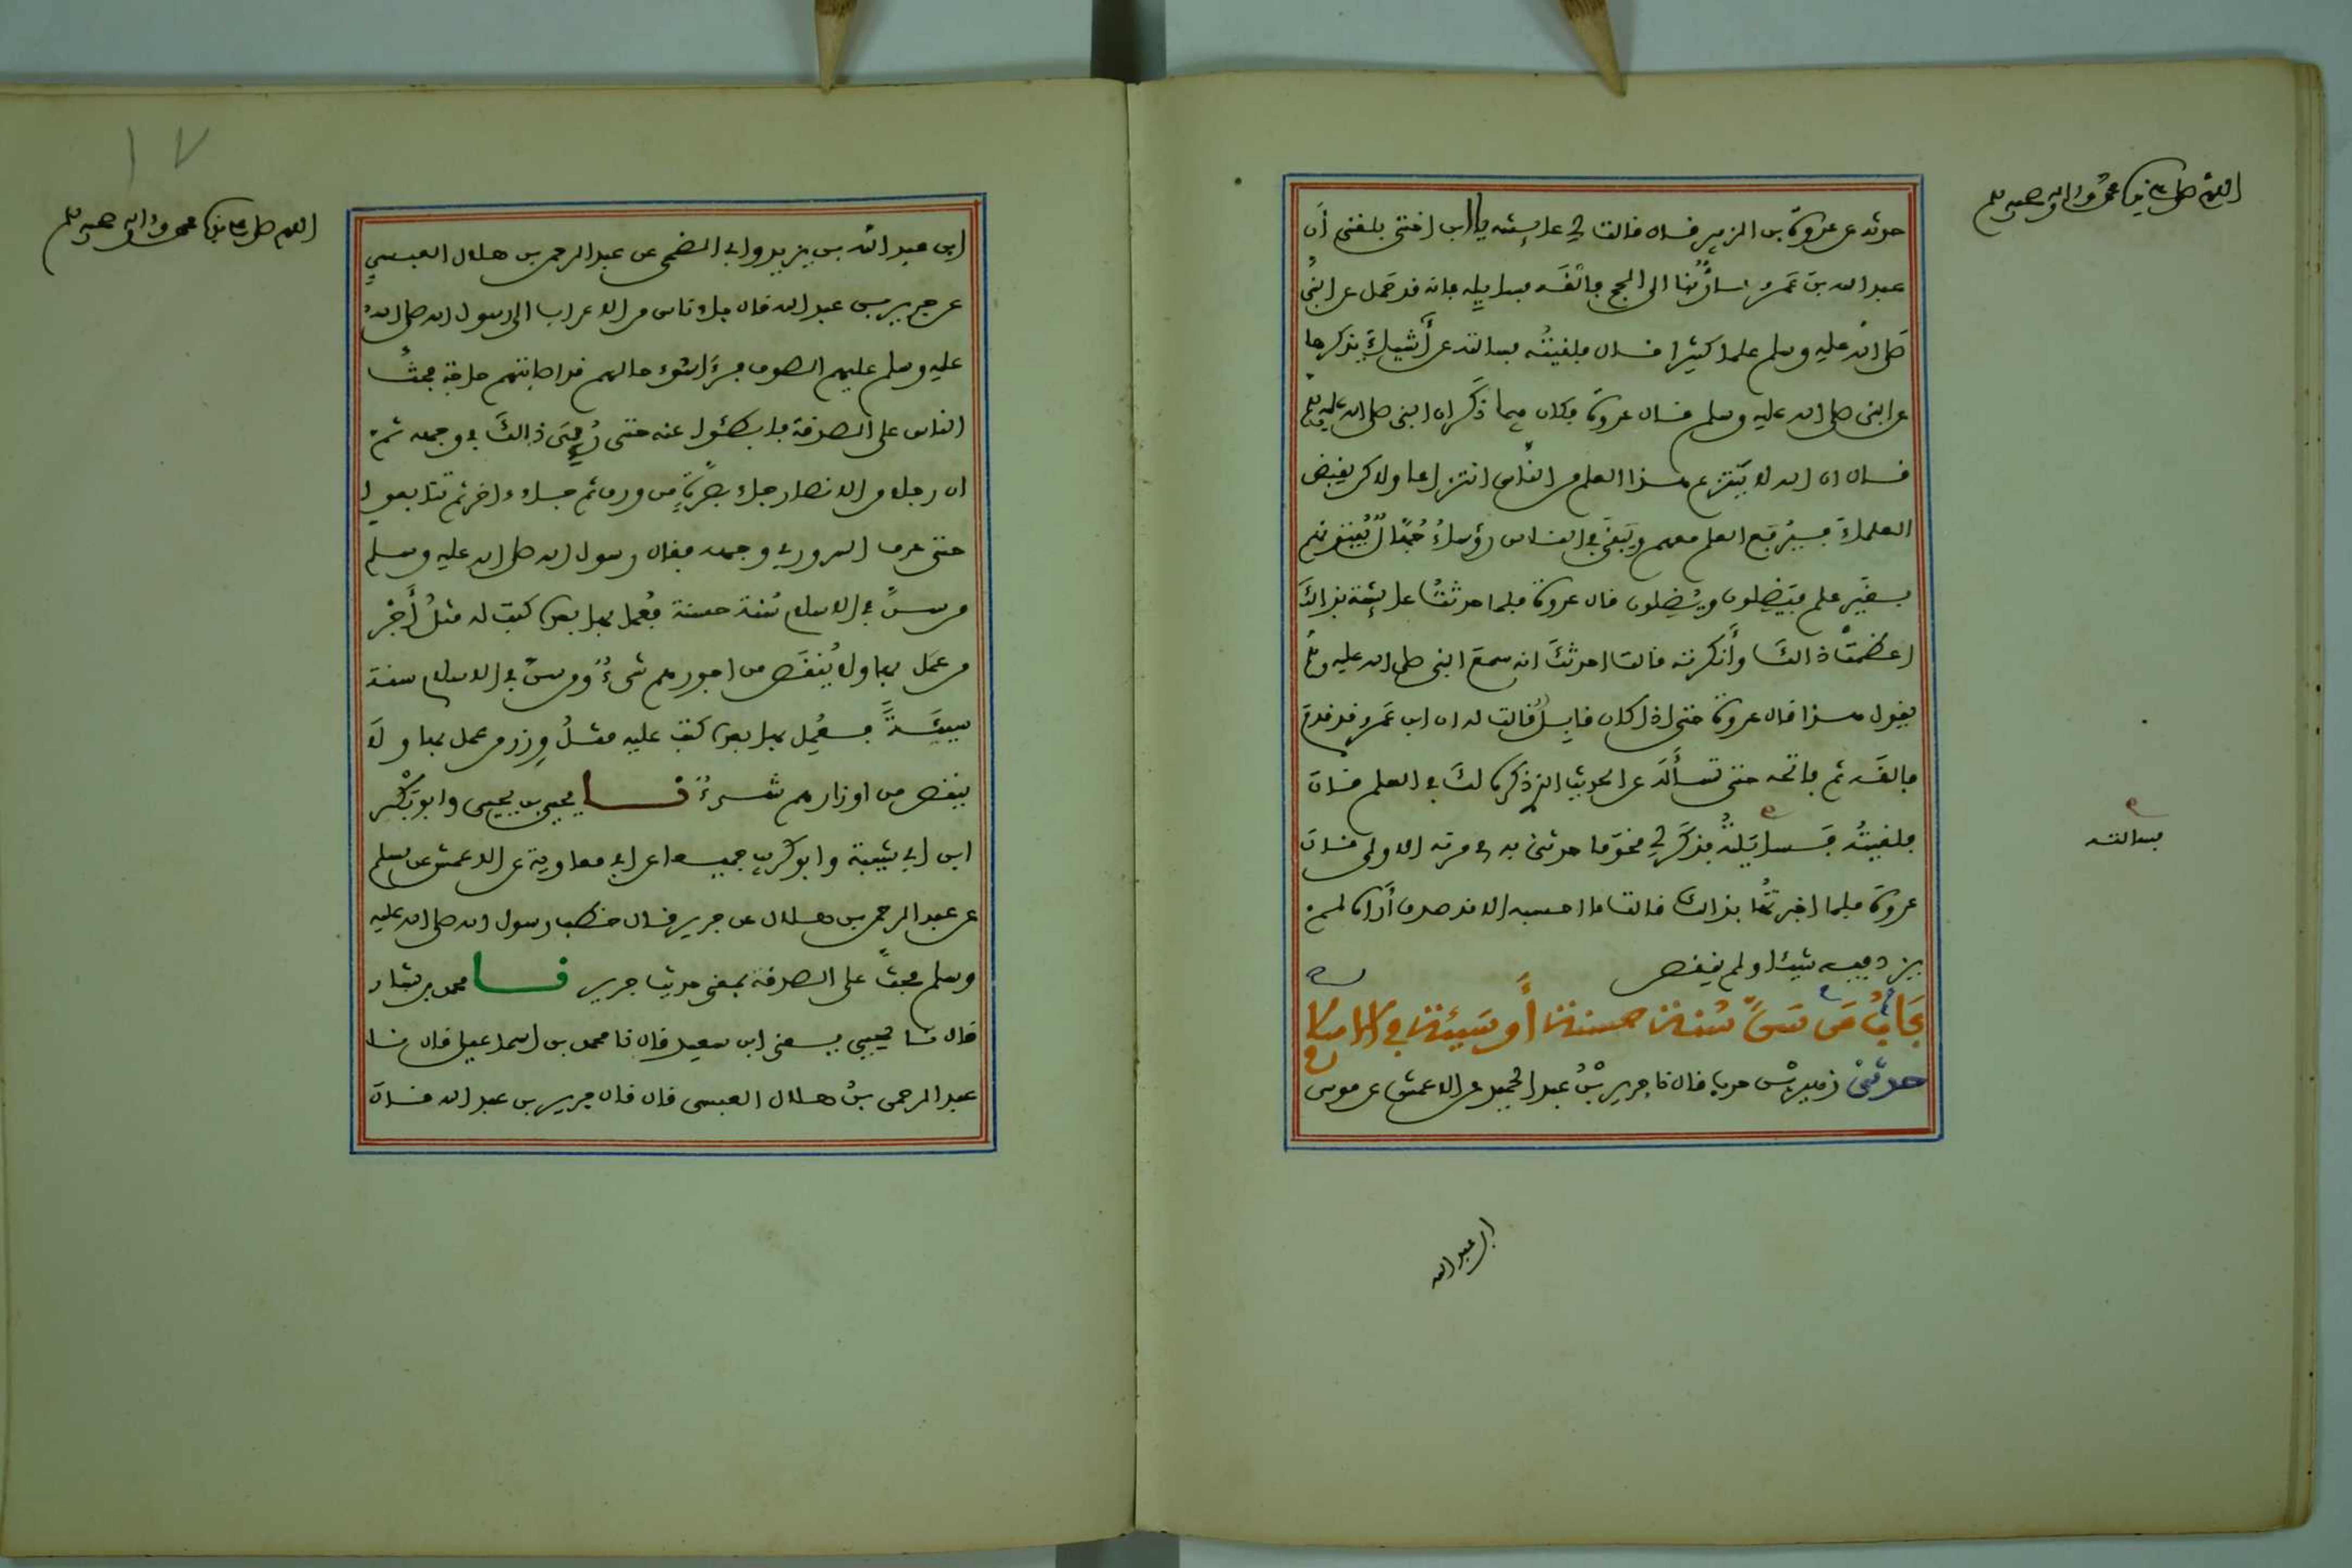 اللهم صل على نبينا محمد واله وصحبه وسلم
حدثه عن عروة بن الزبير قال قالت لي عايشة يا ابن اختي بلغني أن
عبد الله بن عمرو مارٌّ بنا الى الحج فالقه فسايله فانه قد حمل عن النبي
صلى الله عليه وسلم علما كثيرا قال فلقيته فسالته عن أشياء يذكرها
عن النبي صلى الله عليه وسلم قال عروة فكان فيما ذكر ان النبي صلى الله عليه وسلم
قال ان الله لا ينتزع هذا العلم من الناس انتزاعا ولاكن يقبض
العلماء فيرفع العلم معهم ويبقى في الناس رؤساء جهالا يفتونهم
بغير علم فيضلون ويضلون قال عروة فلما حدثت عايشة بذالك
اعظمت ذالك وأنكرته قالت احدثك انه سمع النبي صلى الله عليه وسلم
يقول هذا قال عروة حتى اذا كان قابل قالت له ان ابن عمرو قد قدم
فالقه ثم فاتحه حتى تسأله عن الحديث الذي ذكره لك في العلم قال
فلقيته فسايلته فذكره لي نحو ما حدثني به في مرته الاولى قال
فسالته
عروة فلما اخبرتها بذالك قالت ما احسبه الا قد صدق أراه لم
يزد فيه شيئا ولم ينقص
باب من سن سنة حسنة أو سيئة في الاسلام
حدثني زهير بن حرب قال نا جرير بن عبد الحميد عن الاعمش عن موسى
ابن عبد الله
١٧
اللهم صل على نبينا محمد واله وصحبه وسلم
ابن عبد الله بن يزيد وابي الضحى عن عبد الرحمن بن هلال العبسي
عن جرير بن عبد الله قال جاء ناس من الاعراب الى رسول الله صلى الله
عليه وسلم عليهم الصوف فرءا سوء حالهم قد اصابتهم حاجة فحث
الناس على الصدقة فابطئوا عنه حتى رءي ذالك في وجهه ثم
ان رجلا من الانصار جاء بصرة من ورق ثم جاء ءاخر ثم تتابعوا
حتى عرف السرور في وجهه فقال رسول الله صلى الله عليه وسلم
من سن في الاسلام سنة حسنة فعمل بها بعده كتب له مثل أجر
من عمل بها ولا ينقص من اجورهم شيء ومن سن في الاسلام سنة
سيئة فعمل بها بعده كتب عليه مثل وزر من عمل بها ولا
ينقص من اوزارهم شيء نا يحيى بن يحيى وابو بكر
ابن ابي شيبة وابو كريب جميعا عن ابي معاوية عن الاعمش عن مسلم
عن عبد الرحمن بن هلال عن جرير قال خطب رسول الله صلى الله عليه
وسلم فحث على الصدقة بمعنى حديث جرير نا محمد بن بشار
قال نا يحيى يعني ابن سعيد قال نا محمد بن اسماعيل قال نا
عبد الرحمن بن هلال العبسي قال قال جرير بن عبد الله قال